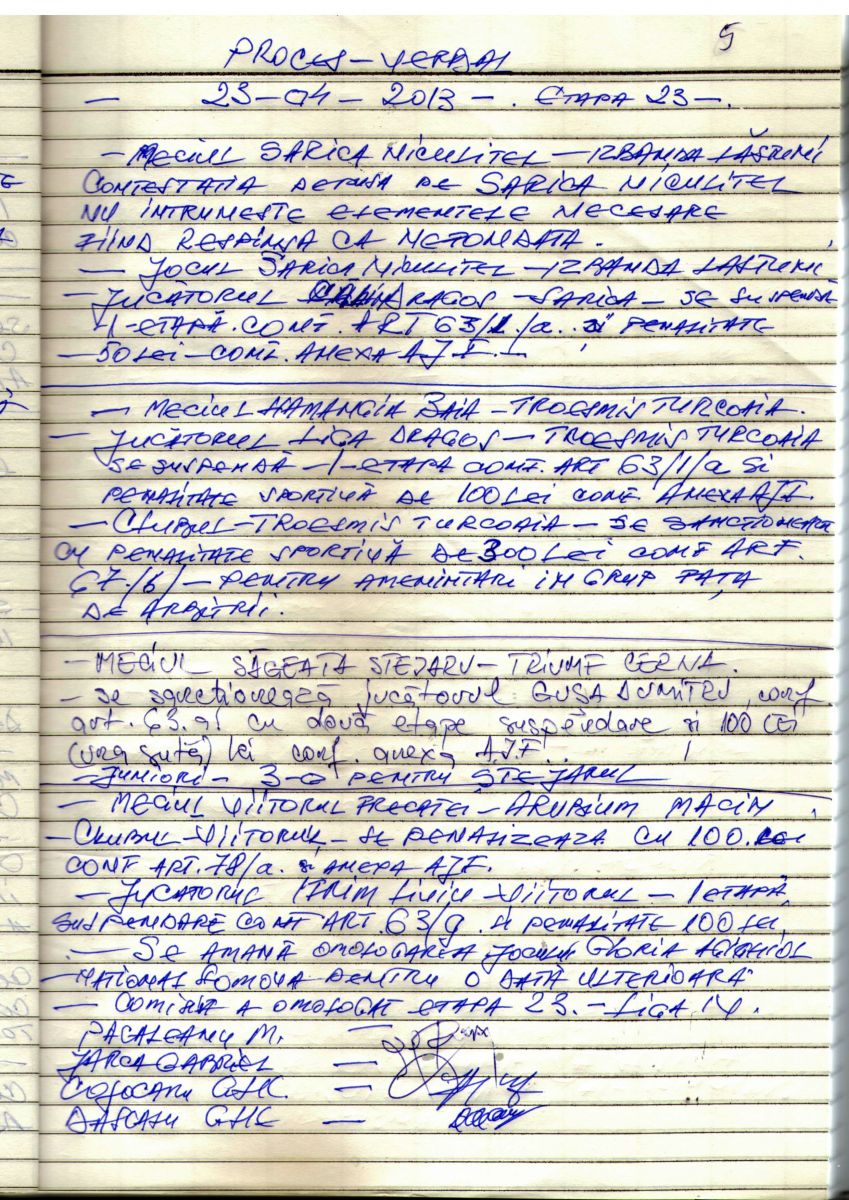 5
PROCES-VERBAL
— 23-04-2013 - . ETAPA 23 -.
- MECIUL SARICA NICULITEL - IZBANDA LĂSTUNI
CONTESTATIA DEPUSA DE SARICA NICULITEL
NU INTRUNESTE ELEMENTELE NECESARE
FIIND RESPINSA CA NEFONDATA.
- JOCUL SARICA NICULITEL - IZBANDA LASTUNI
- JUCĂTORUL DRAGOS - SARICA - SE SUSPENDĂ
1-ETAPĂ. CONF. ART 63/1/a. si PENALITATE
- 50 LEI - CONF. ANEXA AJF. -
- MECIUL HAMANGIA BAIA - TROESMIS TURCOAIA.
- JUCĂTORUL LICA DRAGOS - TROESMIS TURCOAIA
SE SUSPENDĂ - 1-ETAPA CONF. ART 63/1/a SI
PENALITATE SPORTIVĂ DE 100 LEI CONF ANEXA AJF.
- CLUBUL - TROESMIS TURCOAIA - SE SANCTIONEAZA
CU PENALITATE SPORTIVĂ DE 300 LEI CONF ART.
67/b/ - PENTRU AMENINTARI IN GRUP FAȚA
DE ARBITRII.
- MECIUL SĂGEATA STEJARU - TRIUMF CERNA.
- se sancționează jucătorul GUȘA DUMITRU conf.
art. 63. g1 cu două etape suspendare si 100 LEI
(una sută) lei conf. anexa A.J.F..
- JUNIORI - 3-0 PENTRU STEJARUL
- MECIUL VIITORUL FRECATEI - ARUBIUM MACIN
- CLUBUL - VIITORUL - SE PENALIZEAZA CU 100. LEI
CONF ART. 78/a. si ANEXA AJF.
- JUCATORUL IFRIM LIVIU - VIITORUL - 1 ETAPĂ
SUSPENDARE CONF ART. 63/g. si PENALITATE 100 LEI
- SE AMANĂ OMOLOGAREA JOCULUI GLORIA AGIGHIOL
- NATIONAL SOMOVA PENTRU O DATĂ ULTERIOARĂ
- COMISIA A OMOLOGAT ETAPA 23. - LIGA IV.
PACALEANU M. —
JARCA GABRIEL —
COJOCARU GHE. —
DASCALU GHE —